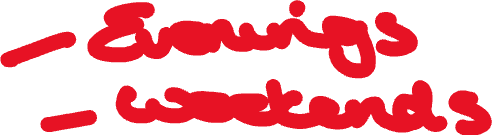 - Evenings
- weekends